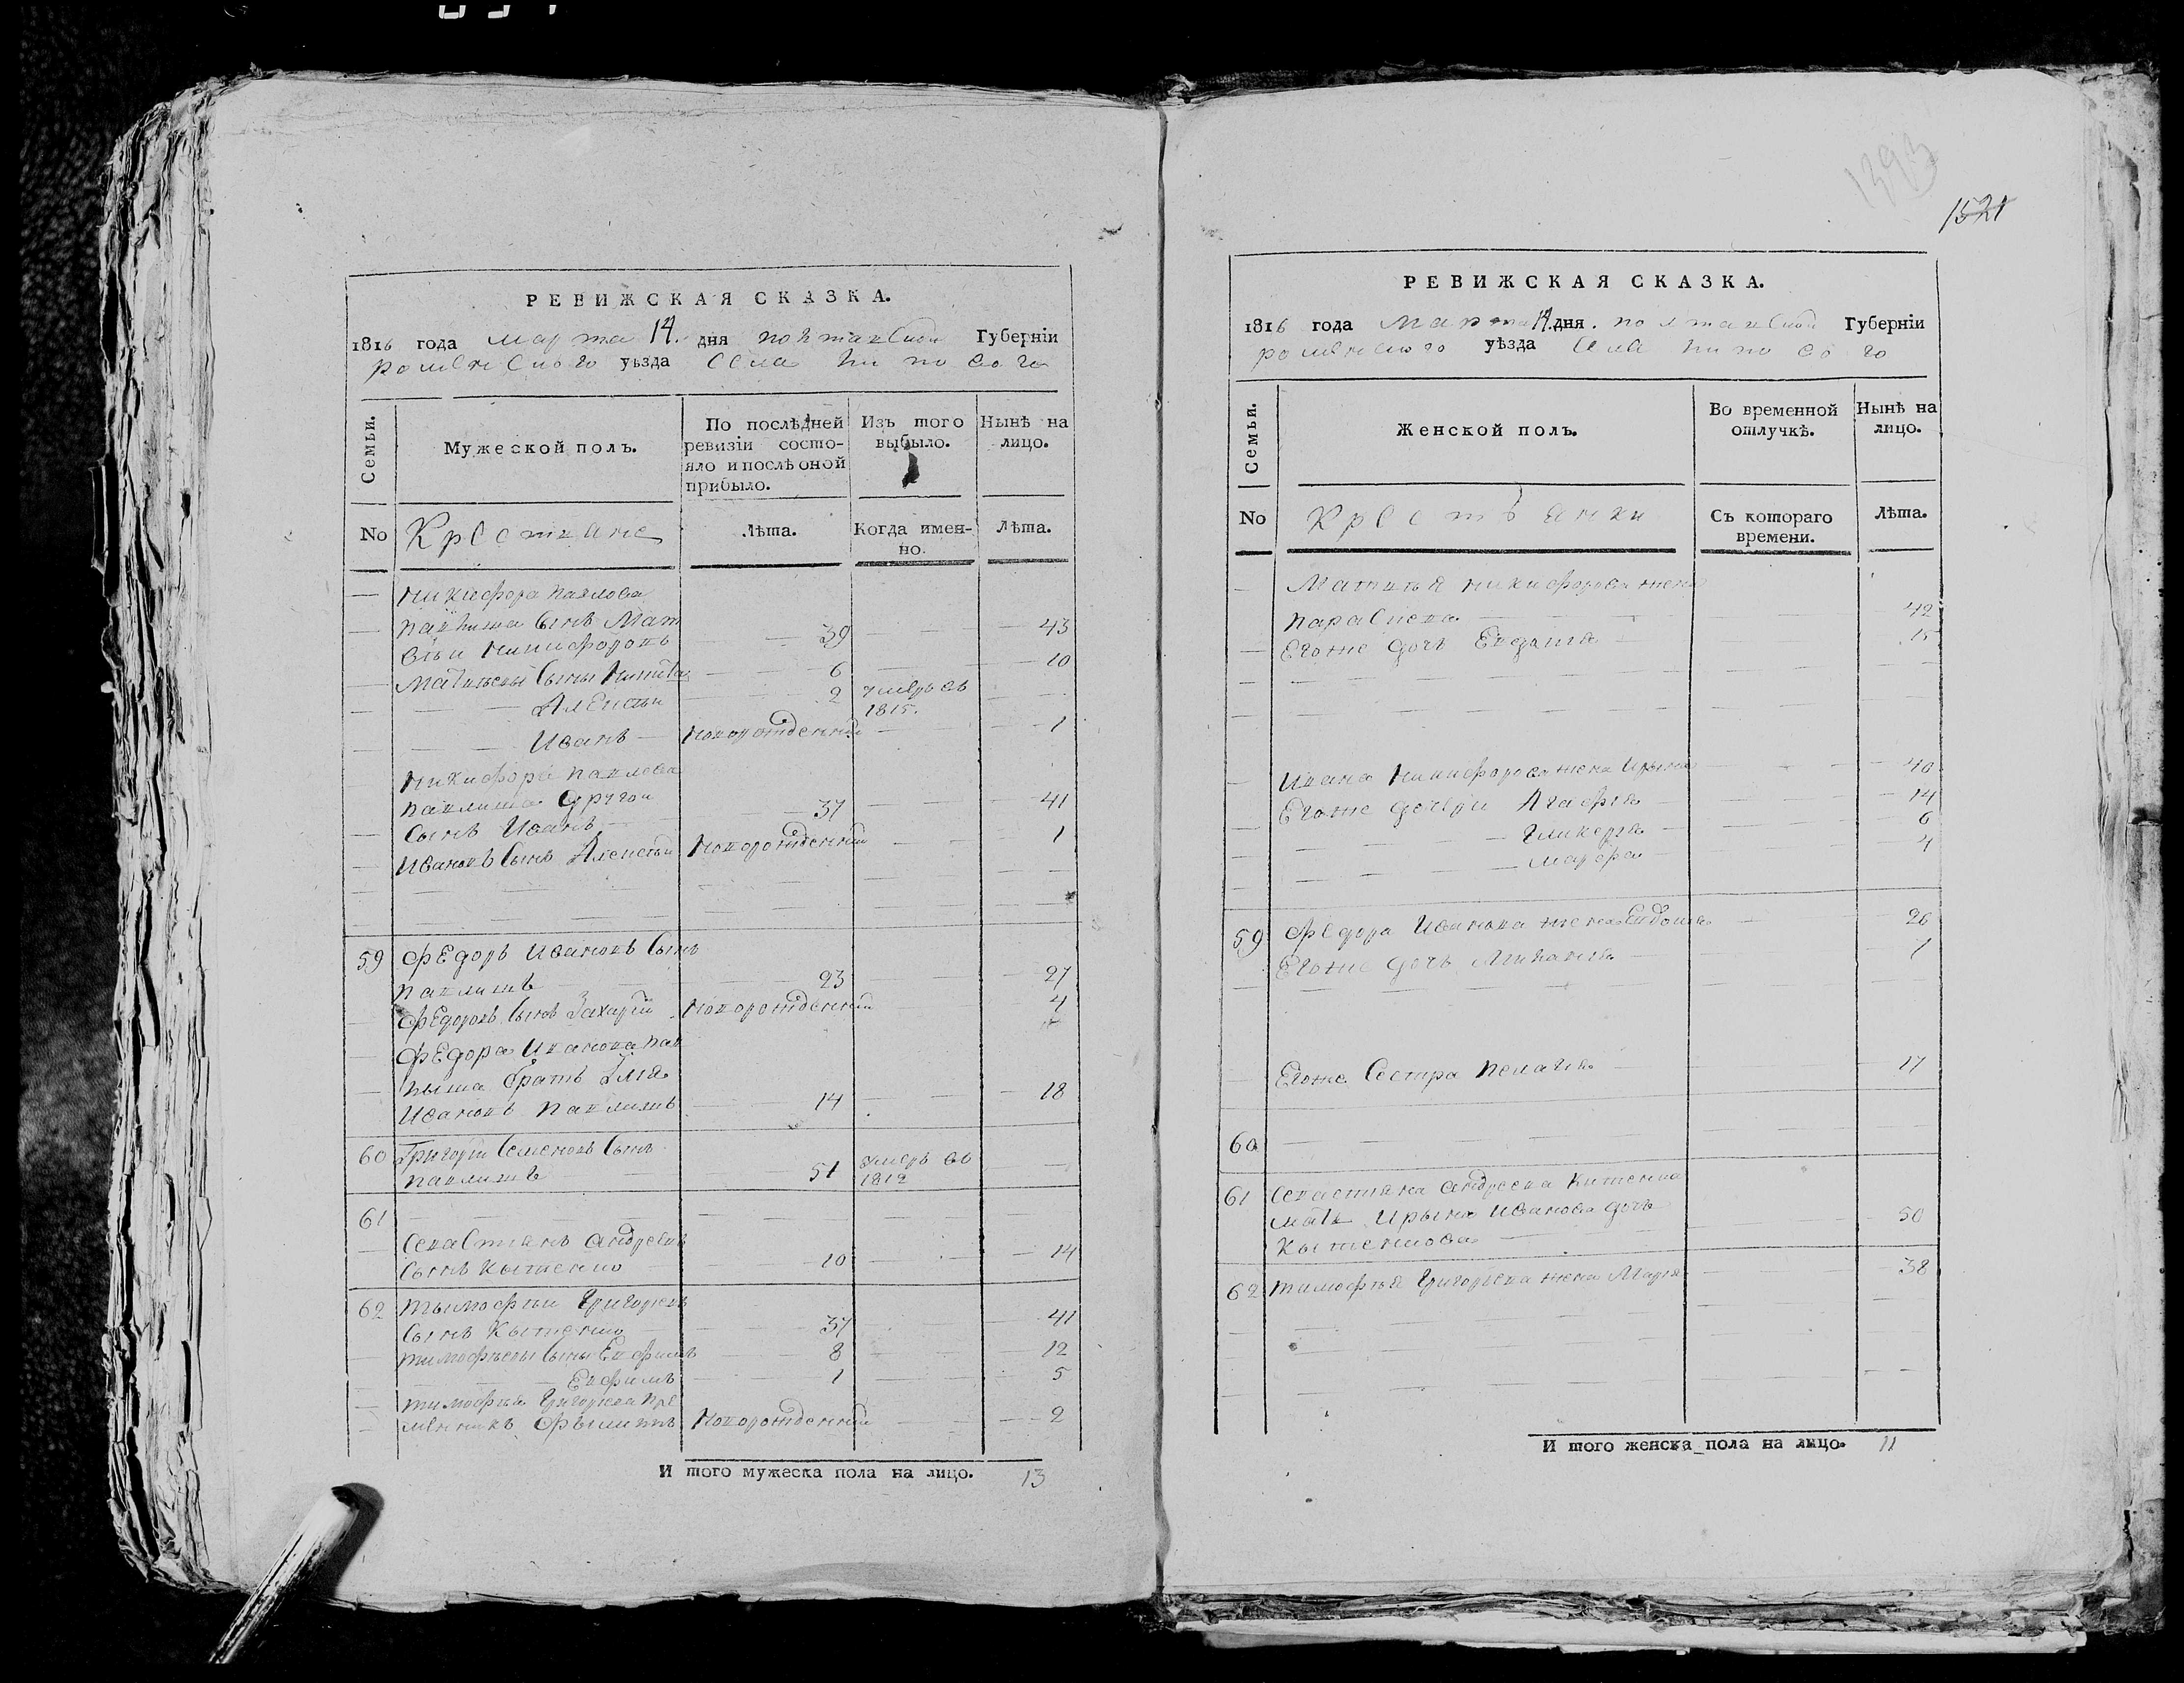 РЕВИЖСКАЯ СКАЗКА.
1816 года марта 14. дня полтавской Губерніи
роменского уѣзда села
Семьи.
Мужеской полъ.
По послѣдней ревизіи состо-
яло и послѣ оной
прибыло.
Изъ того
выбыло.
Нынѣ на
лицо.
No Крестяне Лѣта. Когда имен-
но. Лѣта.
Никифора павлова
сынъ Мат
вѣй Никифоровъ 39 43
Матвѣевы сыны Никита 6 10
Алексѣй 2 умеръ въ
1815.
Иванъ Новорожденный 1
Никифора павлова
другой
сынъ Иванъ 37 41
Ивановъ сынъ Алексѣй Новорожденный 1
59 Федоръ Ивановъ сынъ
23 27
Федоровъ сынъ Захарій Новорожденный 4
Федора Иванова пав
братъ Илья
Ивановъ 14 18
60 Григорій Семеновъ сынъ
51 умеръ во
1812
61
Севастіянъ Андреевъ
сынъ Кытенко 10 14
62 Тымофѣй Григорьевъ
сынъ Кытенко 37 41
Тимофѣевы сыны 8 12
Евфимъ 1 5
Тимофѣя Григорьева пле
мѣнникъ Новорожденный 2
И того мужеска пола на лицо. 13
1521
РЕВИЖСКАЯ СКАЗКА.
1816 года Марта 14. дня. полтавской Губерніи
роменского уѣзда села
Семьи.
Женской полъ.
Во временной
отлучкѣ.
Нынѣ на
лицо.
No Крестьянки Съ котораго
времени. Лѣта.
Матвѣя никифорова жена
параскева 42
Егоже дочь 15
Ивана Никифорова жена Ирына 40
Егоже дочери Агафія 14
Гликерія 6
марфа 4
59 Федора Иванова жена 26
Егоже дочь 1
Егоже Сестра пелагія 17
60
61 Севастіяна Андреева Китенка
мать Ирына Иванова дочь 50
Кытенкова
62 Тимофѣя Григорьева жена Марія 38
И того женска пола на лицо. 11